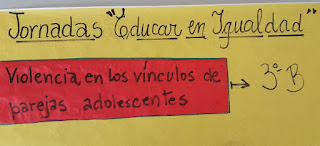 Jornadas "Educar en Igualdad"
Violencia, en los vínculos de
parejas adolescentes
→ 3º B